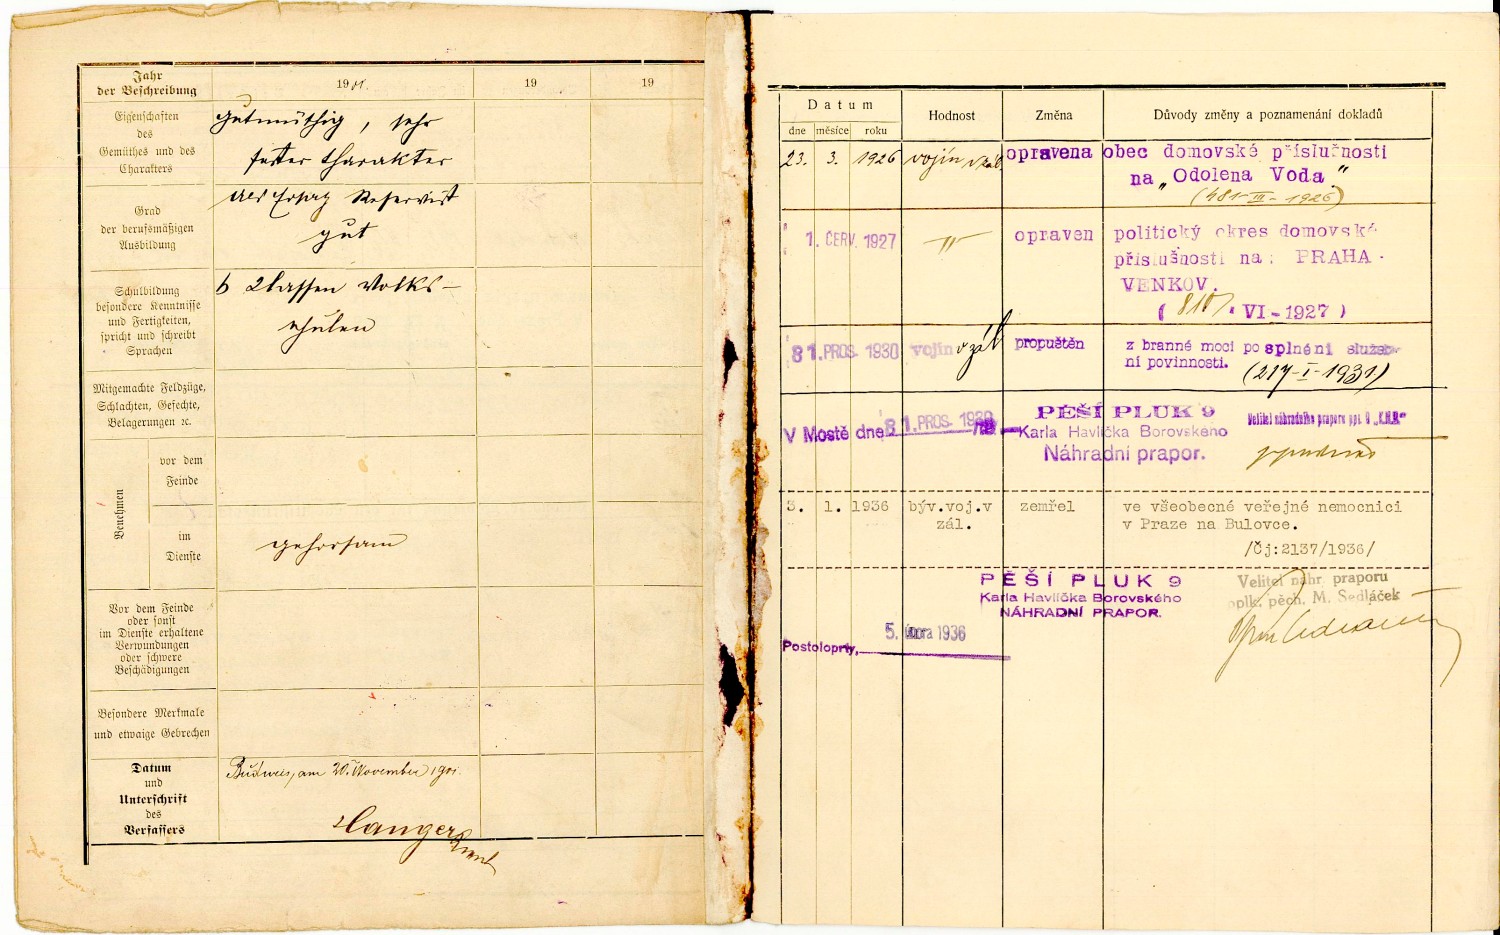 Jahr
der Beschreibung
1901.
19
19
Eigenschaften
des
Gemüthes und des
Charakters
gutmüthig, sehr
fester Charakter
Grad
der berufsmäßigen
Ausbildung
als Ersatz Reservist
gut
Schulbildung
besondere Kenntnisse
und Fertigkeiten,
spricht und schreibt
Sprachen
Classen Volks-
schulen
Mitgemachte Feldzüge,
Schlachten, Gefechte,
Belagerungen ꝛc.
Benehmen
vor dem
Feinde
im
Dienste
gehorsam
Vor dem Feinde
oder sonst
im Dienste erhaltene
Verwundungen
oder schwere
Beschädigungen
Besondere Merkmale
und etwaige Gebrechen
Datum
und
Unterschrift
des
Verfassers
Budweis, am 20. November 1901.
Datum
dne měsíce roku
Hodnost
Změna
Důvody změny a poznamenání dokladů
23. 3. 1926 vojín v zál. opravena obec domovské příslušnosti
na „Odolena Voda."
(481-III-1926)
1. ČERV. 1927 —"— opraven politický okres domovské
příslušnosti na: PRAHA-
VENKOV.
VI-1927)
31. PROS. 1930 vojín v zál propuštěn z branné moci po splnění služeb-
ní povinnosti.
(217-I-1931)
V Mostě dne 31. PROS. 1930
PĚŠÍ PLUK 9
Karla Havlíčka Borovského
Náhradní prapor.
Velitel náhradního praporu pěš. pl. 9 „K.H.B."
3. 1. 1936 býv.voj.v zemřel ve všeobecné veřejné nemocnici
zál. v Praze na Bulovce.
/Čj:2137/1936/
PĚŠÍ PLUK 9
Karla Havlíčka Borovského
NÁHRADNÍ PRAPOR.
Velitel náhr. praporu
pplk. pěch. M. Sedláček
Postoloprty, 5. února 1936